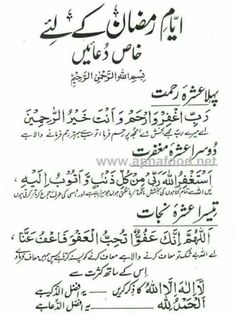 ایّامِ رمضان کے لئے
خاص دُعائیں
بِسْمِ اللهِ الرَّحْمٰنِ الرَّحِيْمِ
پہلا عشرہ رحمت
رَبِّ اغْفِرْ وَارْحَمْ وَاَنْتَ خَيْرُ الرَّاحِمِيْنَ
اے میرے رب مجھے بخش دے مجھ پر رحم فرما، تو سب سے بہتر رحم فرمانے والا ہے
دوسرا عشرہ مغفرت
www.apnafood.net
اَسْتَغْفِرُ اللهَ رَبِّيْ مِنْ كُلِّ ذَنْبٍ وَّاَتُوْبُ اِلَيْهِ
تیسرا عشرہ نجات
اَللّٰهُمَّ اِنَّكَ عَفُوٌّ تُحِبُّ الْعَفْوَ فَاعْفُ عَنَّا
اس کے ساتھ کثرت سے
لَا اِلٰهَ اِلَّا اللهُ کا ذکر کریں یہ افضل الذکر ہے
اَلْحَمْدُ لِلّٰهِ یہ افضل الدعا ہے